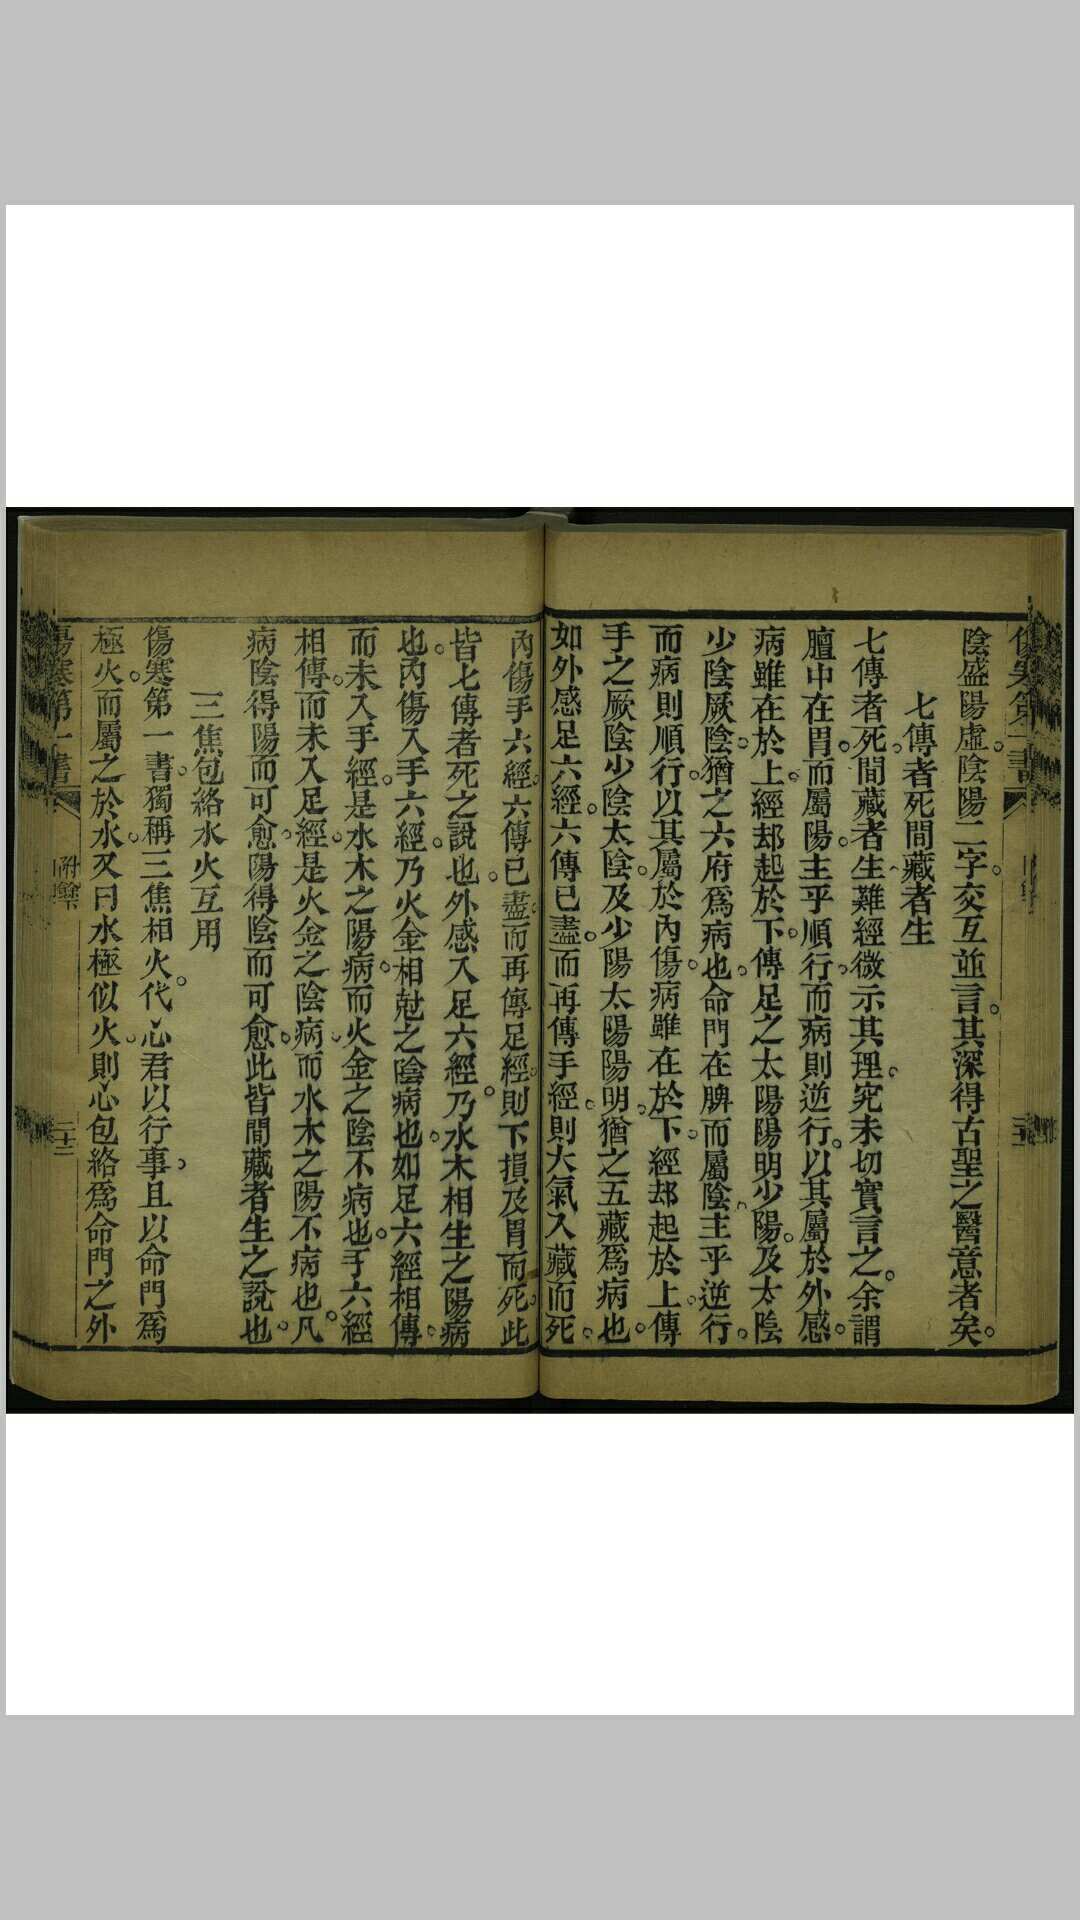 陰盛陽虛。陰陽二字。交互並言。其深得古聖之醫意者矣。
七傳者死間藏者生
七傳者死。間藏者生。難經微示其理。究未切實言之。余謂
膻中在胃。而屬陽。主乎順行。而病則逆行。以其屬於外感。
病雖在於上。經却起於下。傳足之太陽陽明少陽。及太陰
少陰厥陰。猶之六府爲病也。命門在脾而屬陰。主乎逆行。
而病則順行。以其屬於內傷。病雖在於下。經却起於上。傳
手之厥陰少陰太陰。及少陽太陽陽明。猶之五藏爲病也。
如外感足六經。六傳已盡。而再傳手經。則大氣入藏而死。
內傷手六經。六傳已盡。而再傳足經。則下損及胃而死。此
皆七傳者死之說也。外感入足六經。乃水木相生之陽病
也。內傷入手六經。乃火金相尅之陰病也。如足六經相傳。
而未入手經。是水木之陽病。而火金之陰不病也。手六經
相傳。而未入足經。是火金之陰病。而水木之陽不病也。凡
病陰得陽而可愈。陽得陰而可愈。此皆間藏者生之說也。
三焦包絡水火互用
傷寒第一書。獨稱三焦相火。代心君以行事。且以命門爲
極火。而屬之於水。又曰水極似火。則心包絡爲命門之外
傷寒第一書
附餘
二十二